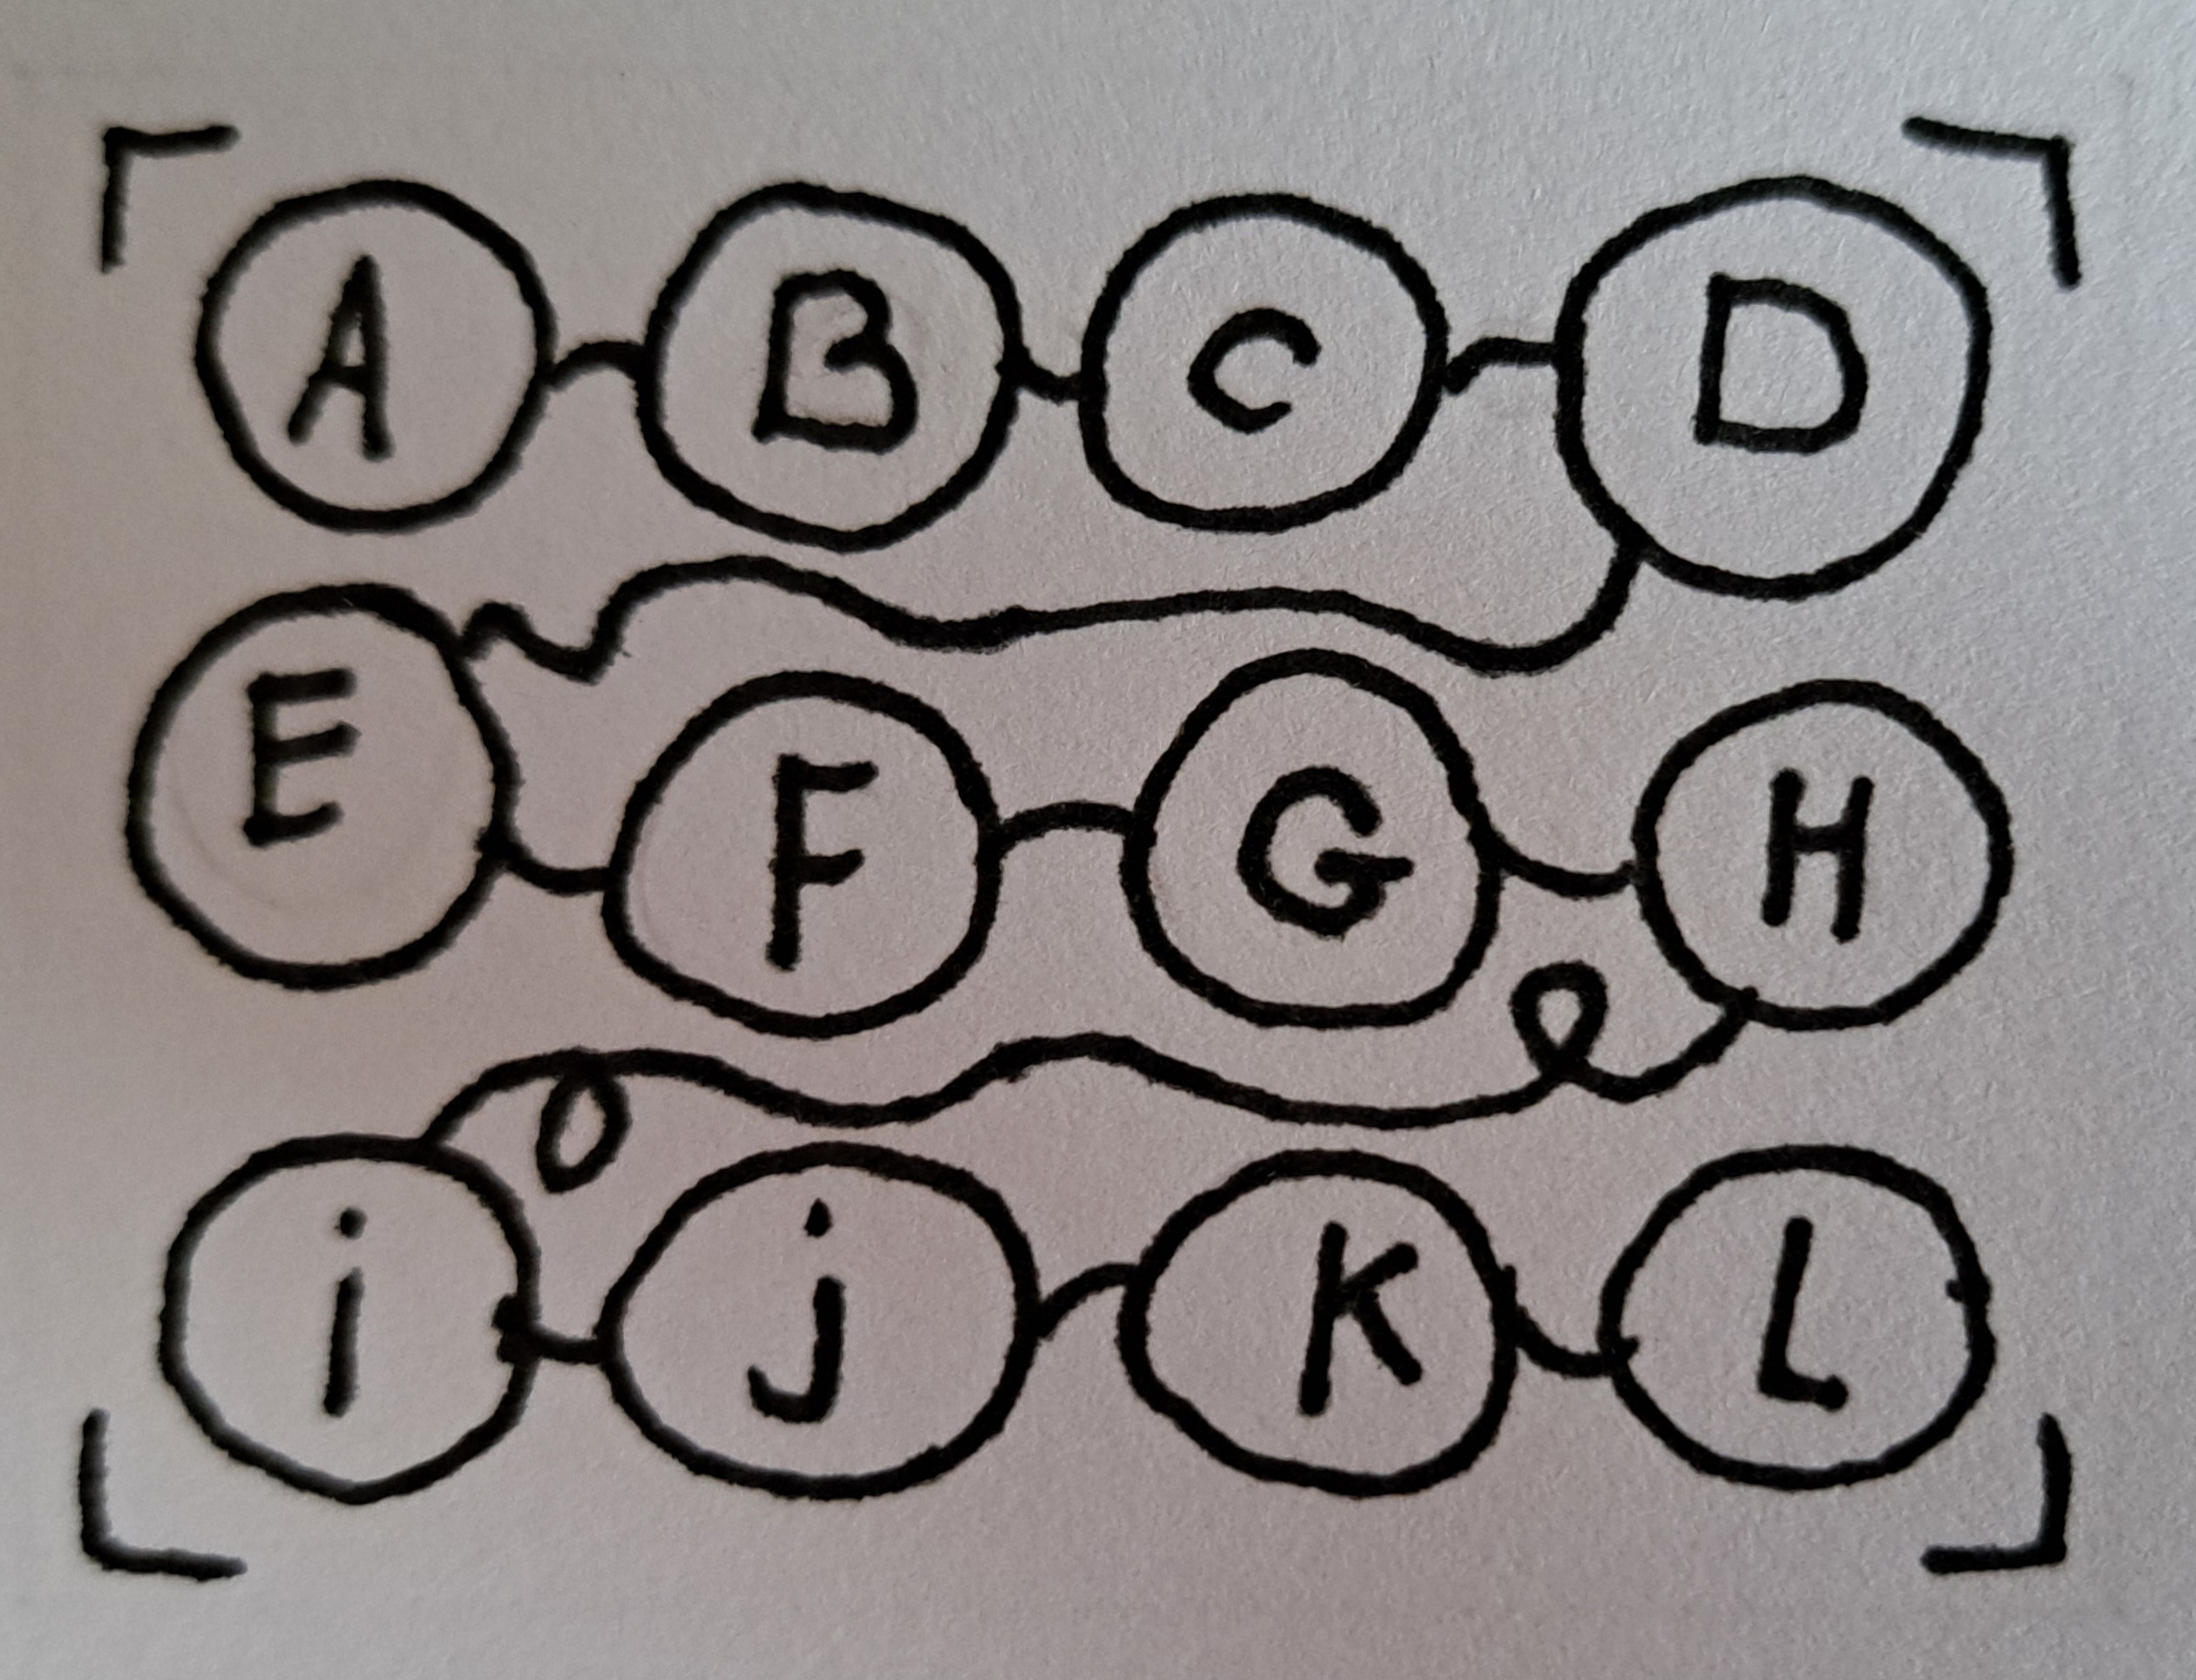 A B C D
E F G H
i j K L